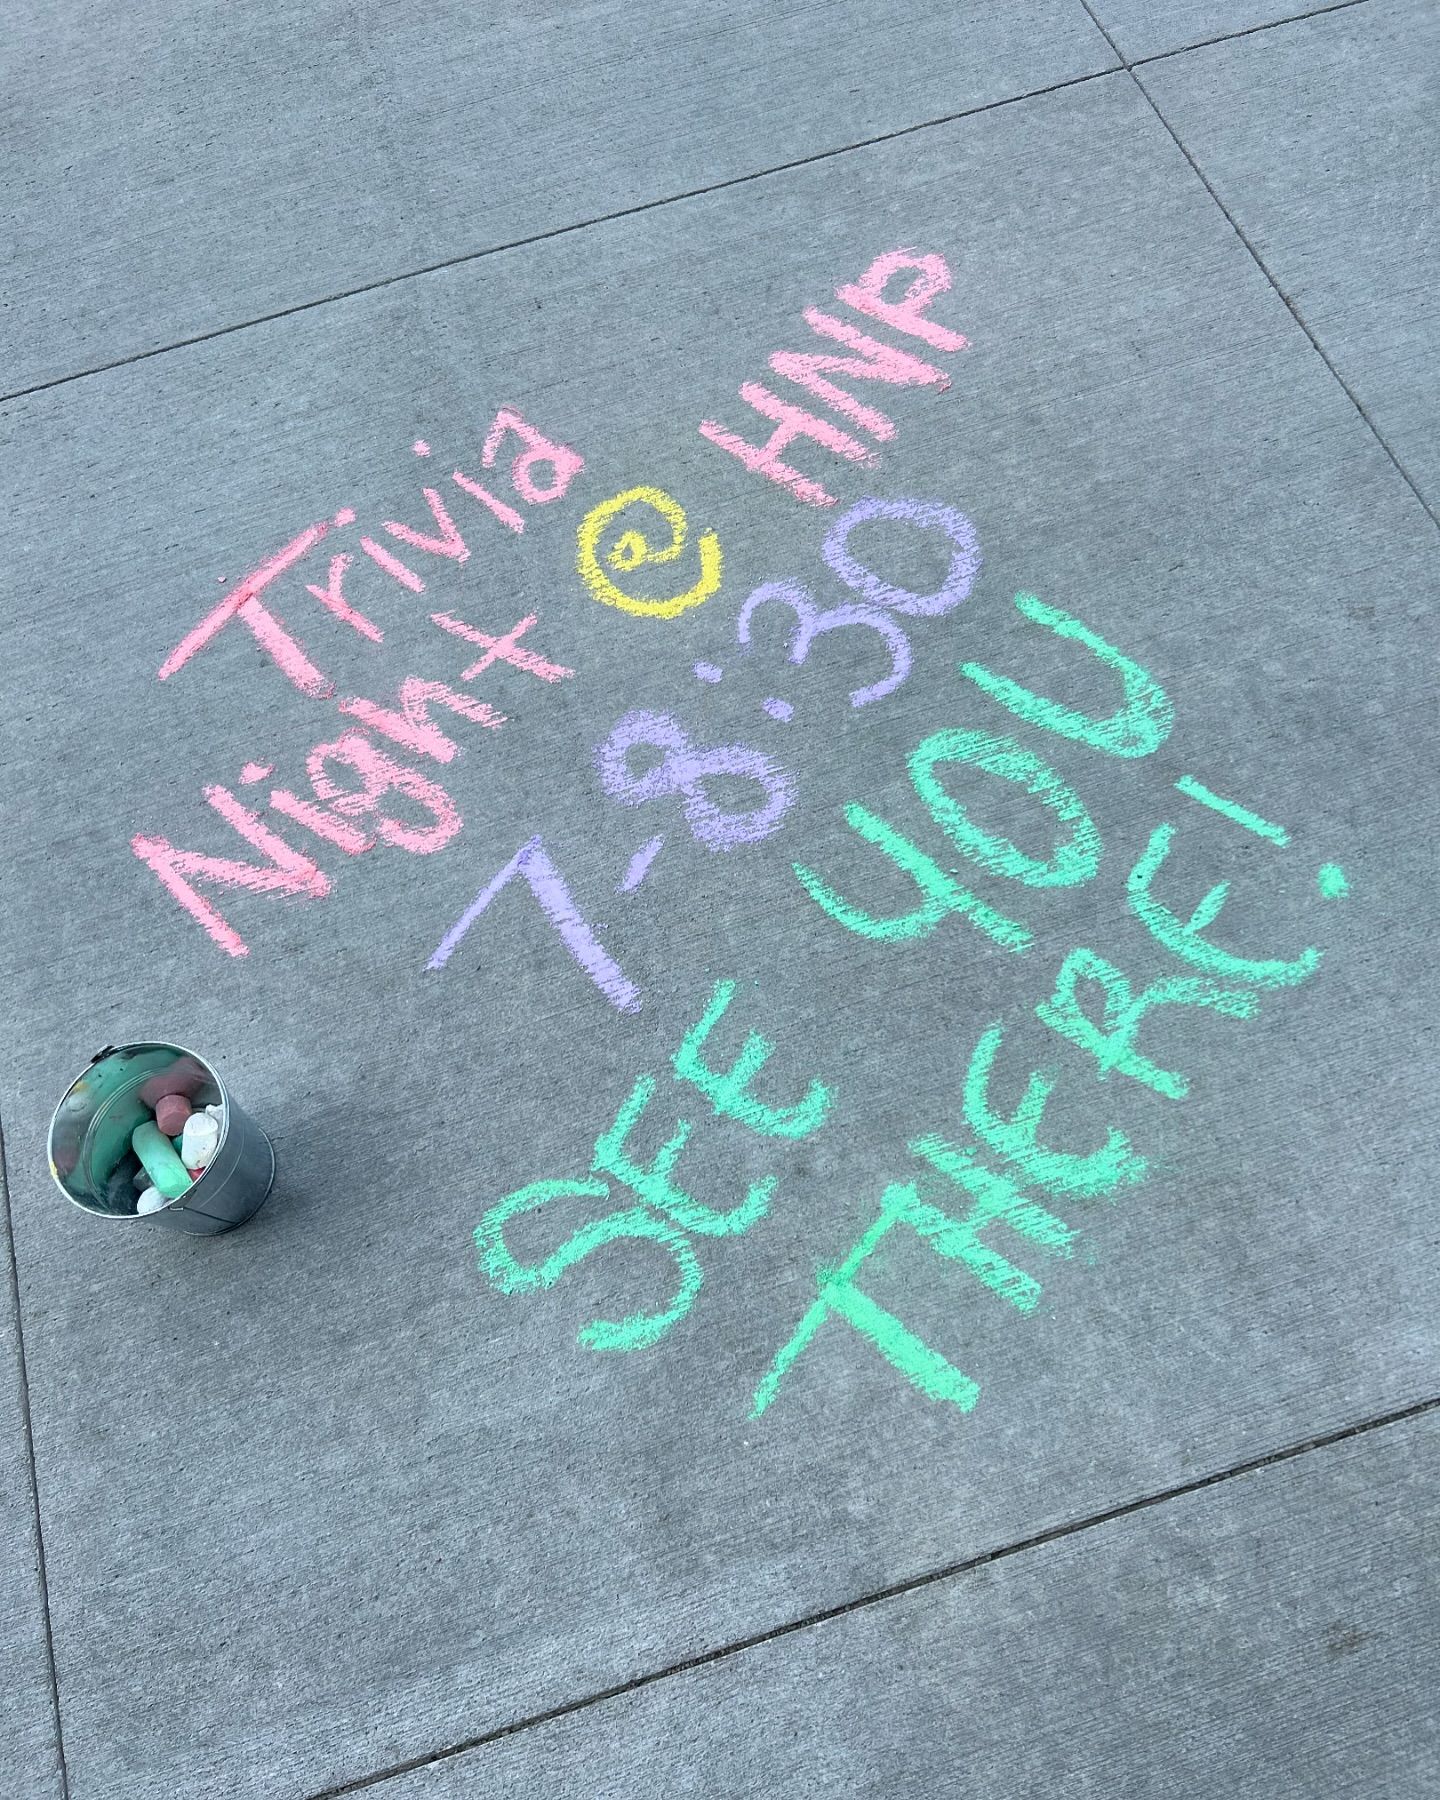 Trivia
Night @ HNP
7-8:30
SEE YOU
THERE!